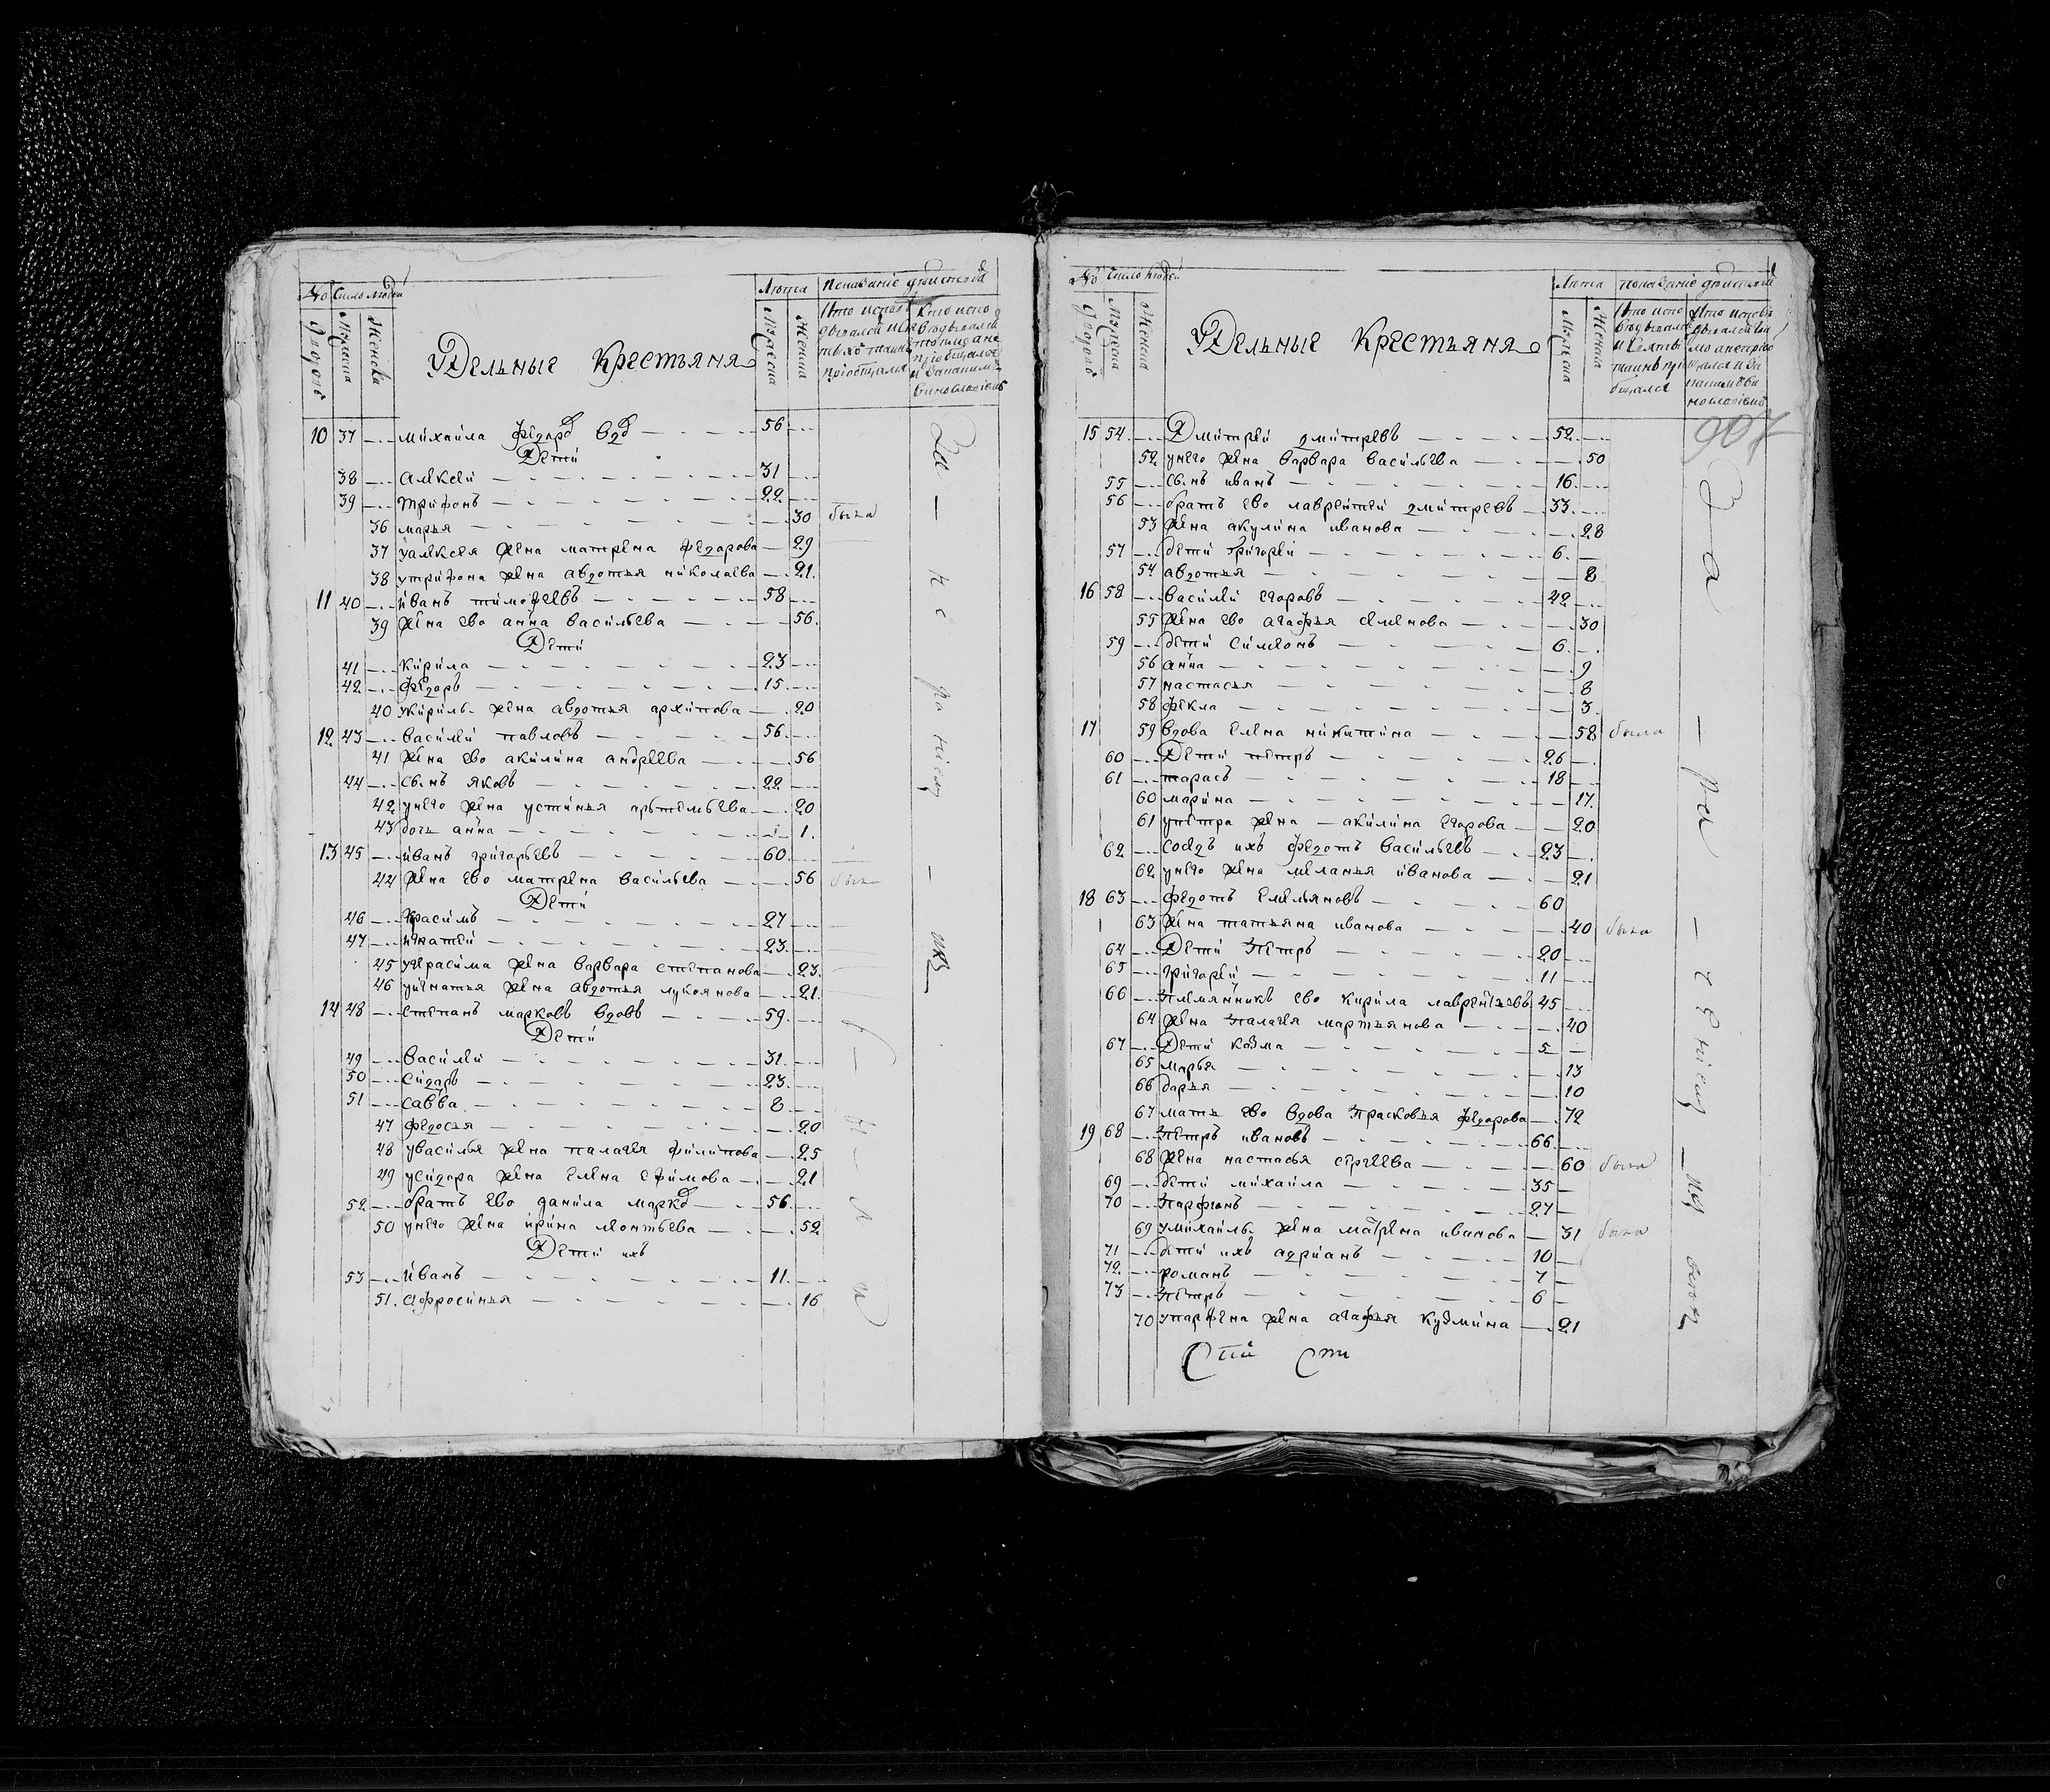 Число людей
Лѣта
Показаніе дѣйствій
Мужеска
Женска
Мужеска
Женска
Удельныые Крестьяня
10 37 михайла федоро вдо 56
Дети
38 алѣксѣй 31
39 трифонъ 22
36 марья 30 была
37 уалѣксѣя жена матрена федорова 29
38 утрифона жена авдотья николаева 21
11 40 иванъ тимофеевъ 58
39 жена ево анна васильева 56
Дети
41 кирила 23
42 федоръ 15
40 укирилы жена авдотья архипова 20
12 43 василей павловъ 56
41 жена ево акилина андреева 56
44 сынъ яковъ 22
42 унего жена устинья артемьева 20
43 дочь анна 1
13 45 иванъ григорьевъ 60
44 жена ево матрена васильева 56 была
Дети
46 герасимъ 27
47 игнатей 23
45 угерасима жена варвара степанова 23
46 уигнатья жена авдотья лукоянова 21
14 48 степанъ марковъ вдовъ 59
Дети
49 василей 31
50 сидаръ 23
51 савва 8
47 федосья 20
48 увасилья жена палагея филипова 25
49 усидора жена елена ефимова 21
52 братъ ево данила марко 56
50 унего жена ирина леонтьева 52
Дети ихъ
53 иванъ 11
51 афросинья 16
Число людей
Лѣта
показаніе дѣйствій
Мужеска
Женска
Мужеска
Женска
Удельныые Крестьяня
15 54 Дмитрей дмитревъ 52
52 унего жена варвара васильева 50
55 сынъ иванъ 16
56 братъ ево лаврентей дмитревъ 33
53 жена акулина иванова 28
57 дети григорей 6
54 авдотья 8
16 58 василей егоровъ 42
55 жена ево агафья семенова 30
59 дети симеонъ 6
56 анна 9
57 настасья 8
58 фекла 3
17 59 вдова елена никитина 58 была
60 Дети петръ 26
61 тарасъ 18
60 марина 17
61 упетра жена акилина егорова 20
62 соседъ ихъ федотъ васильевъ 23
62 унего жена меланья иванова 21
18 63 федотъ емельяновъ 60
63 жена татьяна иванова 40 была
64 Дети петръ 20
65 григорей 11
66 племянникъ ево кирила лаврентьевъ 45
64 жена палагея мартьянова 40
67 Дети козма 5
65 марья 13
66 дарья 10
67 мать ево вдова прасковья федорова 72
19 68 петръ ивановъ 66
68 жена настасья сергеева 60 была
69 дети михайла 35
70 парфенъ 27
69 умихайлы жена матрена иванова 31 была
71 дети ихъ адрианъ 10
72 романъ 7
73 петръ 6
70 упарфена жена агафья кузмина 21